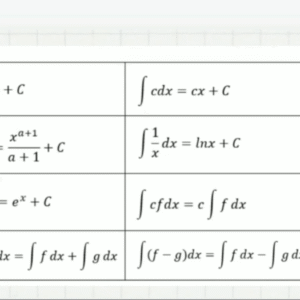 + C	∫ cdx = cx + C
= x^(a+1)/(a + 1) + C	∫ 1/x dx = lnx + C
= e^x + C	∫ cfdx = c ∫ f dx
dx = ∫ f dx + ∫ g dx	∫(f − g)dx = ∫ f dx − ∫ g d